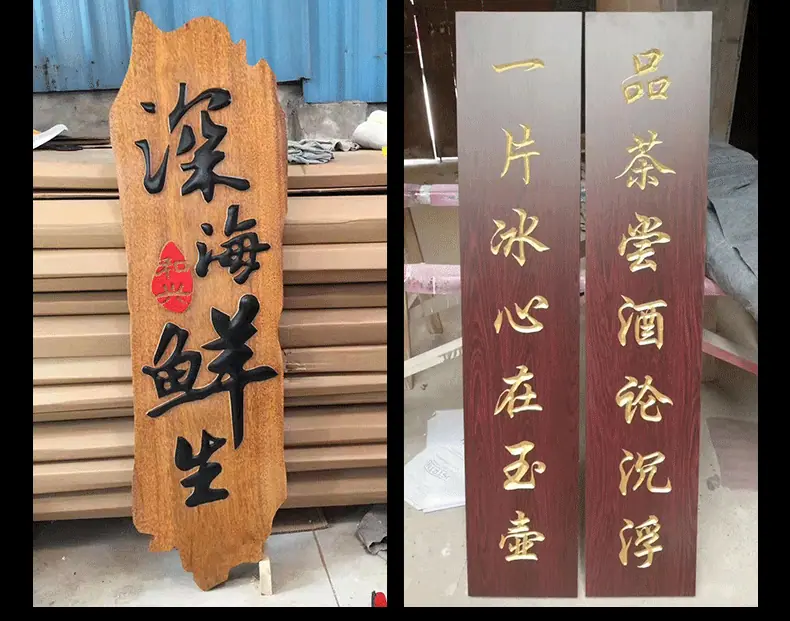 深海鲜生
和兴
一片冰心在玉壶
品茶尝酒论沉浮